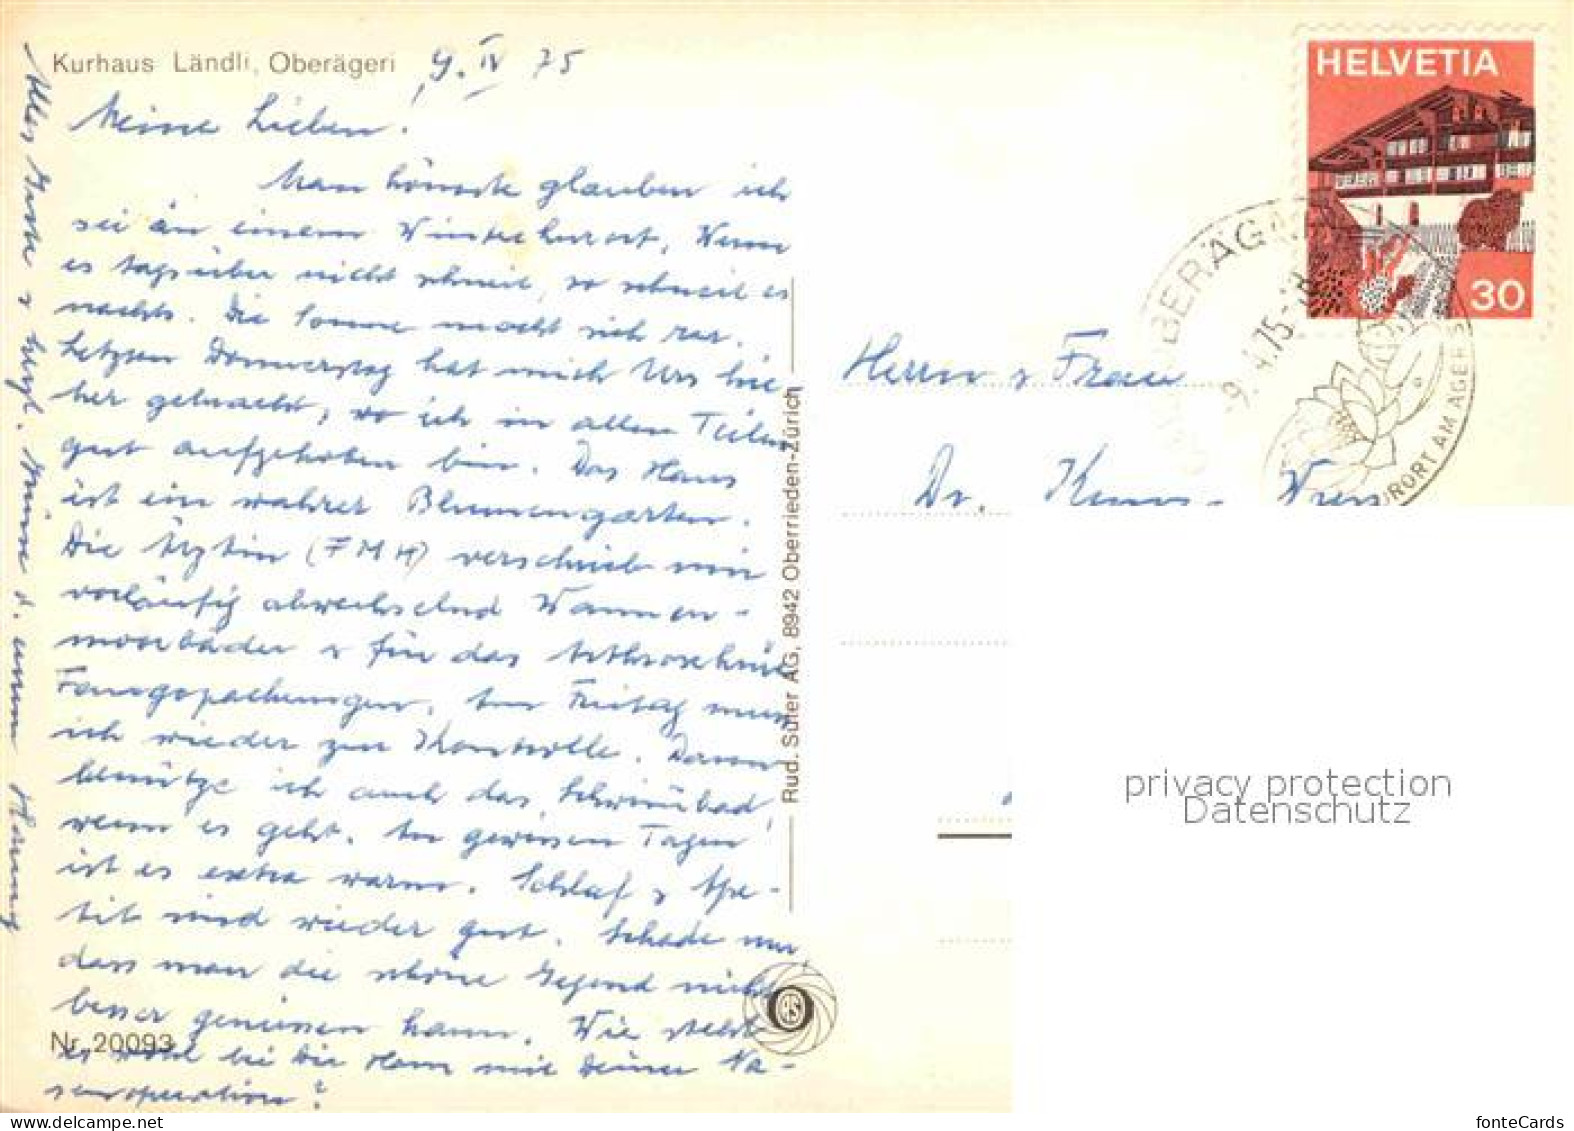 Kurhaus Ländli, Oberägeri 9. IV 75
Meine Lieben!
Man könnte glauben ich
sei in einem Winterkurort. Wenn
es tagsüber nicht schneit, so schneit es
nachts. Die Sonne macht sich rar.
Letzten Donnerstag hat mich Urs hie-
her gebracht, wo ich in allen Teilen
gut aufgehoben bin. Das Haus
ist ein wahrer Blumengarten.
Die Ärztin (FMH) verschrieb mir
vorläufig abwechselnd Wannen-
moorbäder & für das
Fangopackungen. Am Freitag muss
ich wieder zur Kontrolle. Dann
benütze ich auch das Schwimbad,
wenn es geht. An gewissen Tagen
ist es extra warm. Schlaf & Ape-
tit sind wieder gut. Schade nur
dass man die schöne Gegend nicht
besser geniessen kann. Wie steht
es wohl bei Dir Hans mit Deiner Na-
senoperation?
Alles Gute &
HELVETIA
30
OBERÄGERI
-9.4.75-18
KURORT AM ÄGERIS
Herrn & Frau
Dr.
Rud. Suter AG, 8942 Oberrieden-Zürich
RS
Nr. 20093
privacy protection
Datenschutz
fonteCards